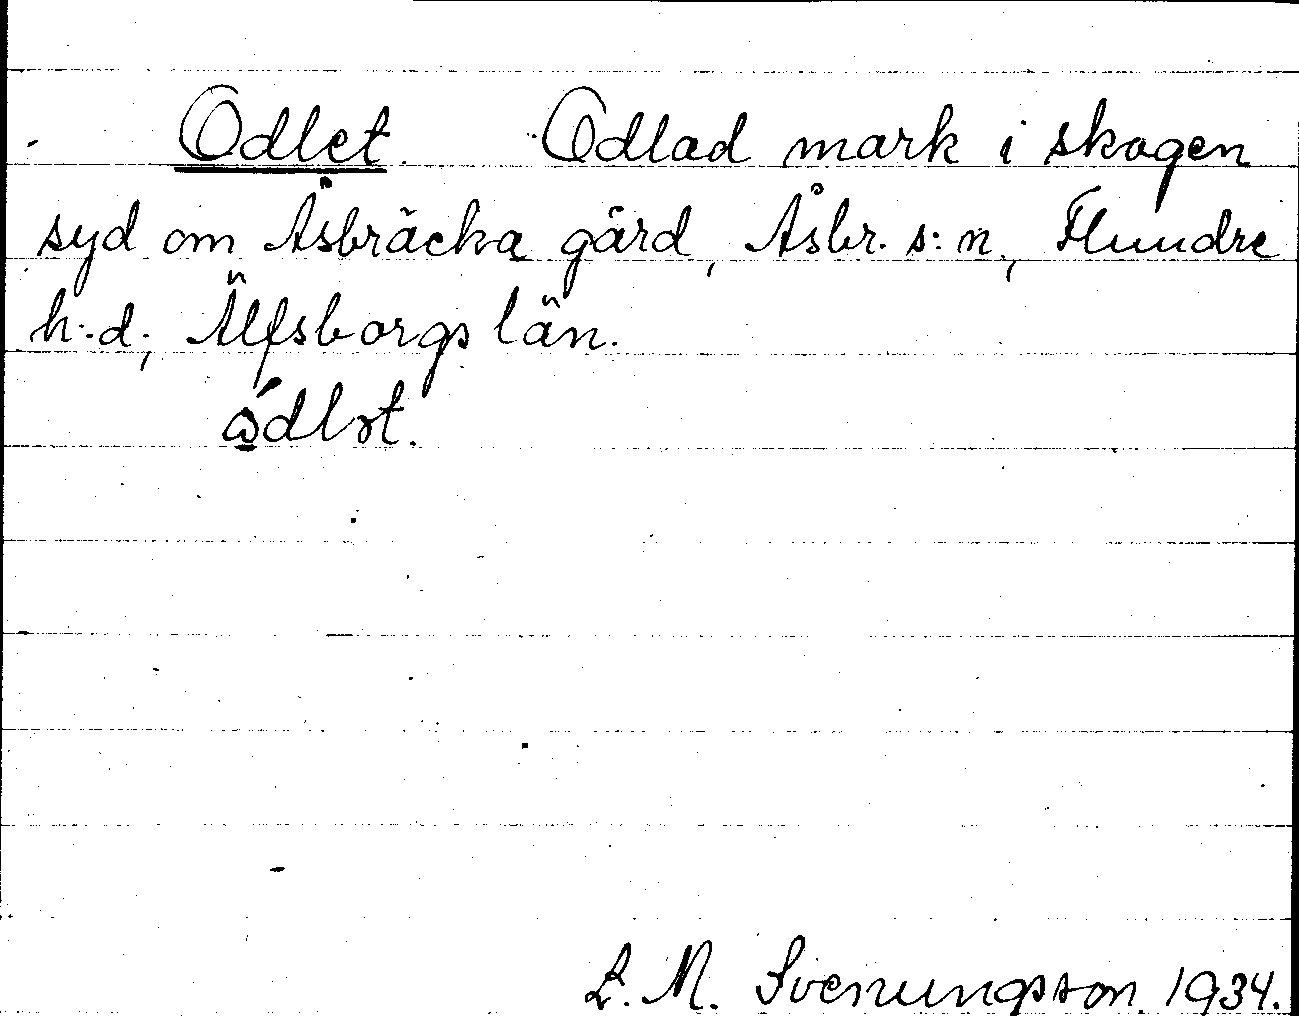 Odlet. Odlad mark i skogen
syd om Åsbräcka gård, Åsbr. s:n, Flundre
h.d., Älfsborgs län.
L. M. Svenungsson 1934.